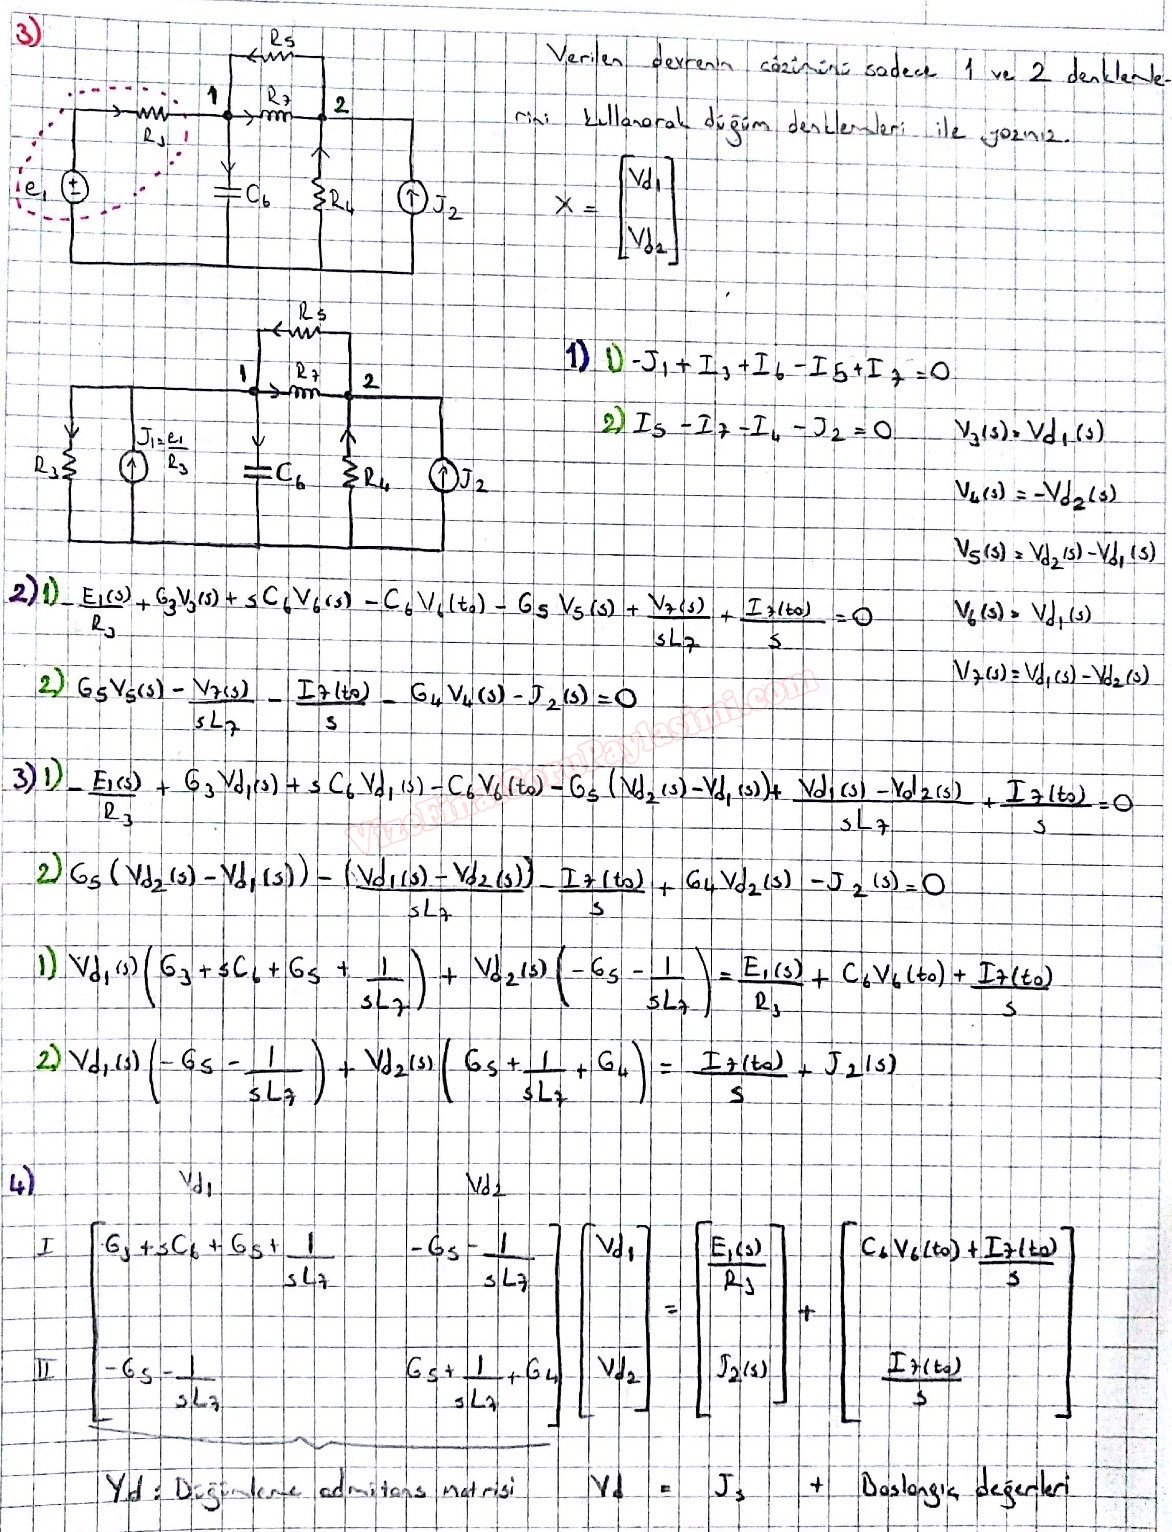 3)
R5
R7
1
2
R3
e1
C6
R4
J2
Verilen devrenin çözümünü sadece 1 ve 2 denklemle-
rini kullanarak düğüm denklemleri ile yazınız.
X = [Vd1
Vd2]
R5
R7
1
2
R3
J1 = e1/R3
C6
R4
J2
1) 1) -J1 + I3 + I6 - I5 + I7 = 0
2) I5 - I7 - I4 - J2 = 0
V3(s) = Vd1(s)
V4(s) = -Vd2(s)
V5(s) = Vd2(s) - Vd1(s)
V6(s) = Vd1(s)
V7(s) = Vd1(s) - Vd2(s)
2) 1) - E1(s)/R3 + G3V3(s) + sC6V6(s) - C6V6(t0) - G5V5(s) + V7(s)/sL7 + I7(t0)/s = 0
2) G5V5(s) - V7(s)/sL7 - I7(t0)/s - G4V4(s) - J2(s) = 0
3) 1) - E1(s)/R3 + G3Vd1(s) + sC6Vd1(s) - C6V6(t0) - G5(Vd2(s) - Vd1(s)) + Vd1(s) - Vd2(s)/sL7 + I7(t0)/s = 0
2) G5(Vd2(s) - Vd1(s)) - (Vd1(s) - Vd2(s))/sL7 - I7(t0)/s + G4Vd2(s) - J2(s) = 0
1) Vd1(s)(G3 + sC6 + G5 + 1/sL7) + Vd2(s)(-G5 - 1/sL7) = E1(s)/R3 + C6V6(t0) + I7(t0)/s
2) Vd1(s)(-G5 - 1/sL7) + Vd2(s)(G5 + 1/sL7 + G4) = I7(t0)/s + J2(s)
4)
Vd1 Vd2
I [G3 + sC6 + G5 + 1/sL7 -G5 - 1/sL7] [Vd1] = [E1(s)/R3] + [C6V6(t0) + I7(t0)/s]
II [-G5 - 1/sL7 G5 + 1/sL7 + G4] [Vd2] [J2(s)] [I7(t0)/s]
Yd : Düğümleme admitans matrisi Vd = Js + Başlangıç değerleri
VizeFinalSoruPaylasimi.com